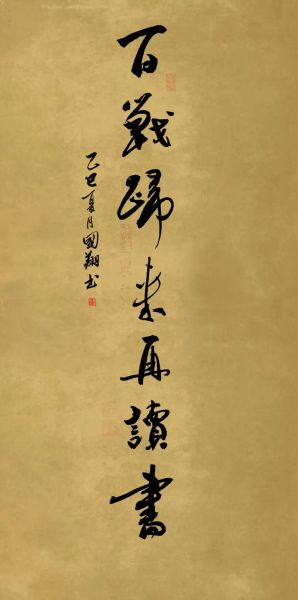 百戰歸來再讀書
乙巳夏月國翔书